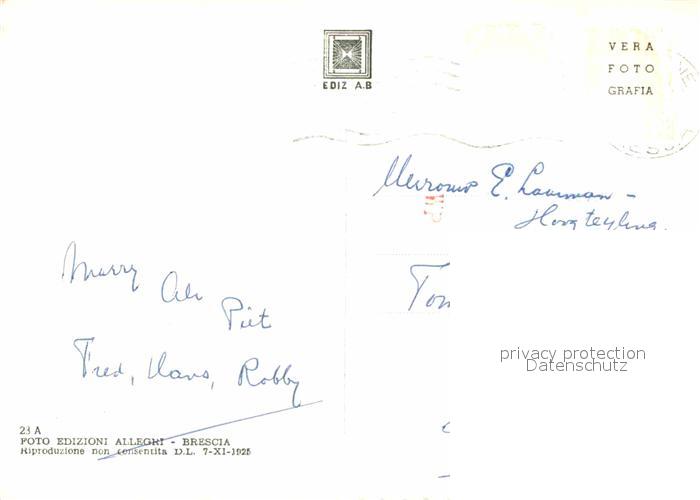 EDIZ A.B
VERA
FOTO
GRAFIA
Mevrouw E. Laurman -
Marry
Piet
Fred, Hans, Robby
privacy protection
Datenschutz
23 A
FOTO EDIZIONI ALLEGRI - BRESCIA
Riproduzione non consentita D.L. 7-XI-1925